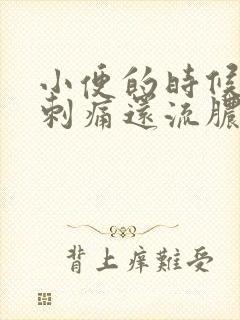 小便的時候
刺痛還流膿
背上痒難受